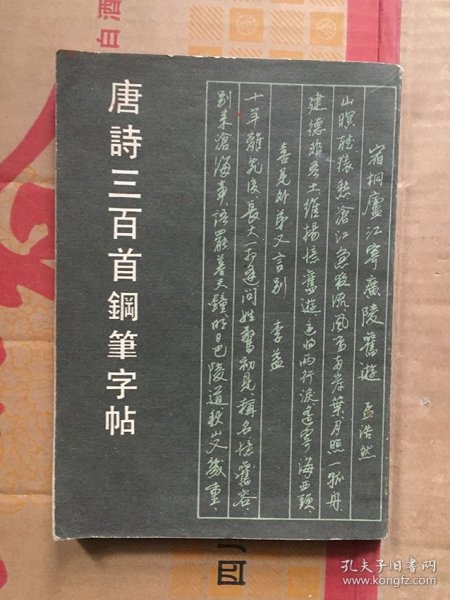 唐詩三百首鋼筆字帖
宿桐廬江寄廣陵舊遊 孟浩然
山暝聴猿愁滄江急夜流風鳴兩岸葉月照一孤舟
建德非吾土維揚憶舊遊還將兩行淚遙寄海西頭
喜見外弟又言別 李益
十年離亂後長大一相逢問姓驚初見稱名憶舊容
別來滄海事語罷暮天鐘明日巴陵道秋山又幾重
白酒
孔夫子旧书网
www.kongfz.com